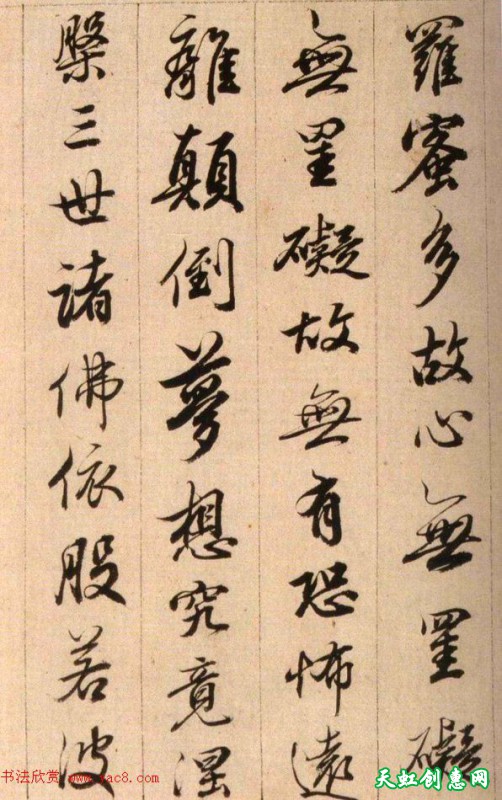 羅蜜多故心無罣礙
無罣礙故無有恐怖遠
離顛倒夢想究竟涅
槃三世諸佛依股若波
书法欣赏 www.yac8.com
天虹创惠网